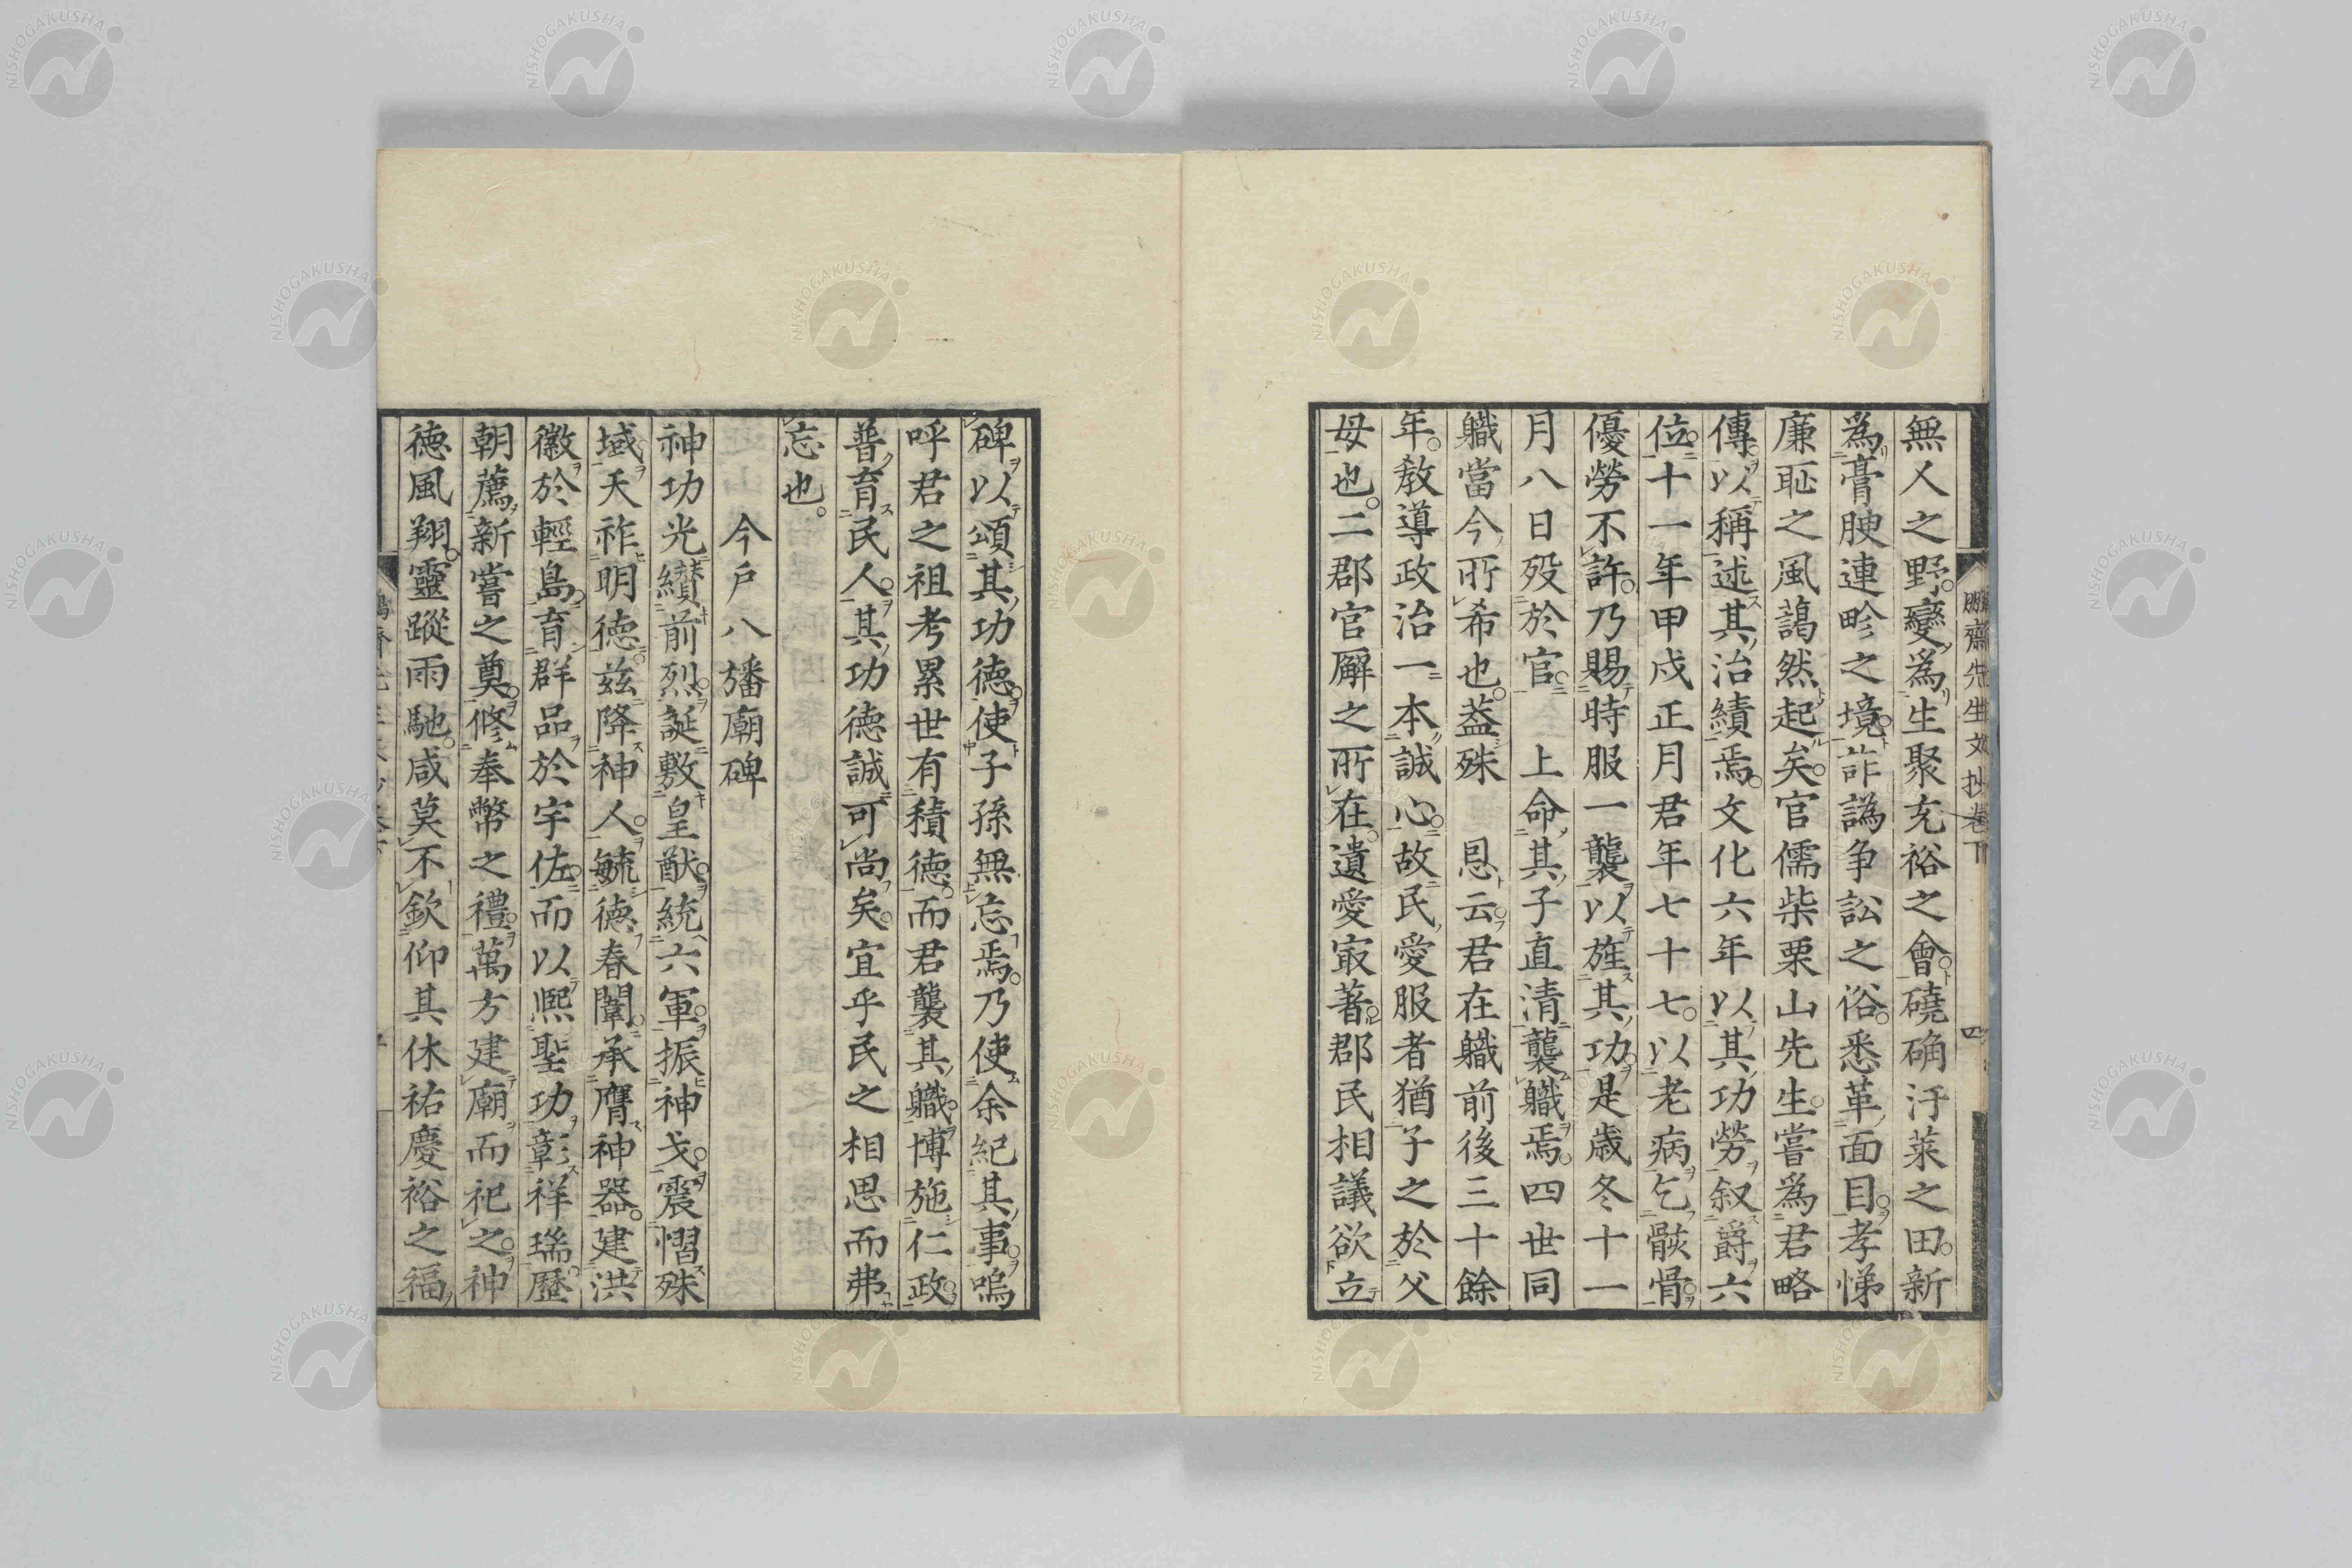 鵬齋先生文抄卷下 四
無人之野變爲生聚充裕之會磽确汙萊之田新
爲膏腴連畛之境詐譌争訟之俗悉革面目孝悌
廉恥之風藹然起矣官儒柴栗山先生嘗爲君略
傳以稱述其治績焉文化六年以其功勞叙爵六
位十一年甲戌正月君年七十七以老病乞骸骨
優勞不許乃賜時服一襲以旌其功是歳冬十一
月八日歿於官 上命其子直清襲職焉四世同
職當今所希也葢殊 恩云君在職前後三十餘
年教導政治一本誠心故民愛服者猶子之於父
母也二郡官廨之所在遺愛㝡著郡民相議欲立
碑以頌其功德使子孫無忘焉乃使余紀其事嗚
呼君之祖考累世有積德而君襲其職博施仁政
普育民人其功德誠可尚矣宜乎民之相思而弗
忘也
今戸八旛廟碑
神功光纉前烈誕敷皇猷統六軍振神戈震慴殊
域天祚明德兹降神人毓德春闈承膺神器建洪
徽於輕島育群品於宇佐而以熈聖功彰祥瑞歷
朝薦新嘗之奠修奉幣之禮萬方建廟而祀之神
德風翔靈蹤雨馳咸莫不欽仰其休祐慶裕之福